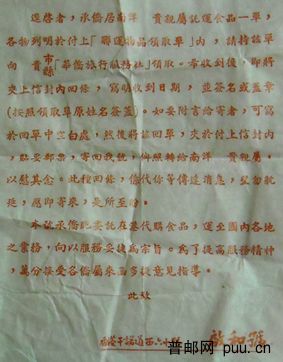 逕啓者，承僑居南洋　貴親屬託運食品一單，
各物列明於付上「聯運物品領取單」內，請持該單
向　貴市縣「華僑旅行服務社」領取。希收到後，即將
夾上信封內回條，寫明收到日期，並簽名或蓋章
(按照領取單原姓名簽蓋)。如要附言給寄者，可寫
於回單中空白處，然後將該回單，夾於付上信封內
，貼妥郵票，寄回我號，俾照轉給南洋　貴親屬，
以慰其念。此種回條，係代你等傳達消息，望勿躭
延，應即寄來，是所至盼。
本號承僑胞委託在港代購食品，運至國內各地
之業務，向以服務妥捷為宗旨。為了提高服務精神
，萬分接受各僑屬來函多提意見指導。
此致
香港干諾道西六十號　啟和號
普邮网 puu.cn